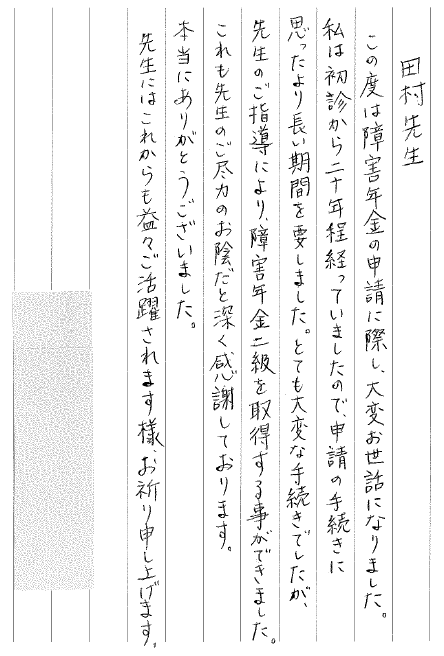 田村先生
この度は障害年金の申請に際し、大変お世話になりました。
私は初診から二十年程経っていましたので、申請の手続きに
思ったより長い期間を要しました。とても大変な手続きでしたが、
先生のご指導により、障害年金二級を取得する事ができました。
これも先生のご尽力のお陰だと深く感謝しております。
本当にありがとうございました。
先生にはこれからも益々ご活躍されます様、お祈り申し上げます。